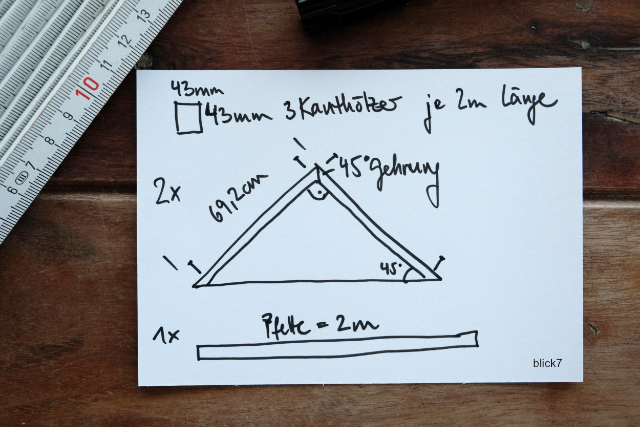 13
12
11
10
9
8
7
6
43mm
43mm 3 Kanthölzer je 2m Länge
45° Gehrung
2x
69,2cm
45°
Pfette = 2m
1x
blick7